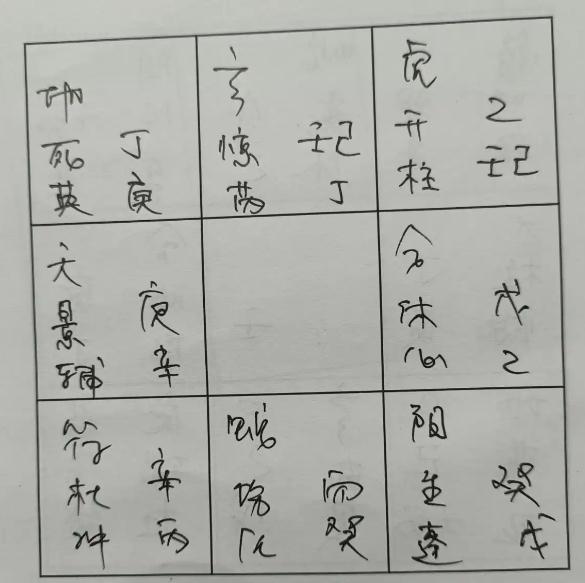 地
死 丁
英 庚
玄
惊 壬己
芮 丁
虎
开 乙
柱 壬己
天
景 庚
辅 辛
合
休 戊
心 乙
符
杜 辛
冲 丙
蛇
伤 丙
任 癸
阴
生 癸
蓬 戊